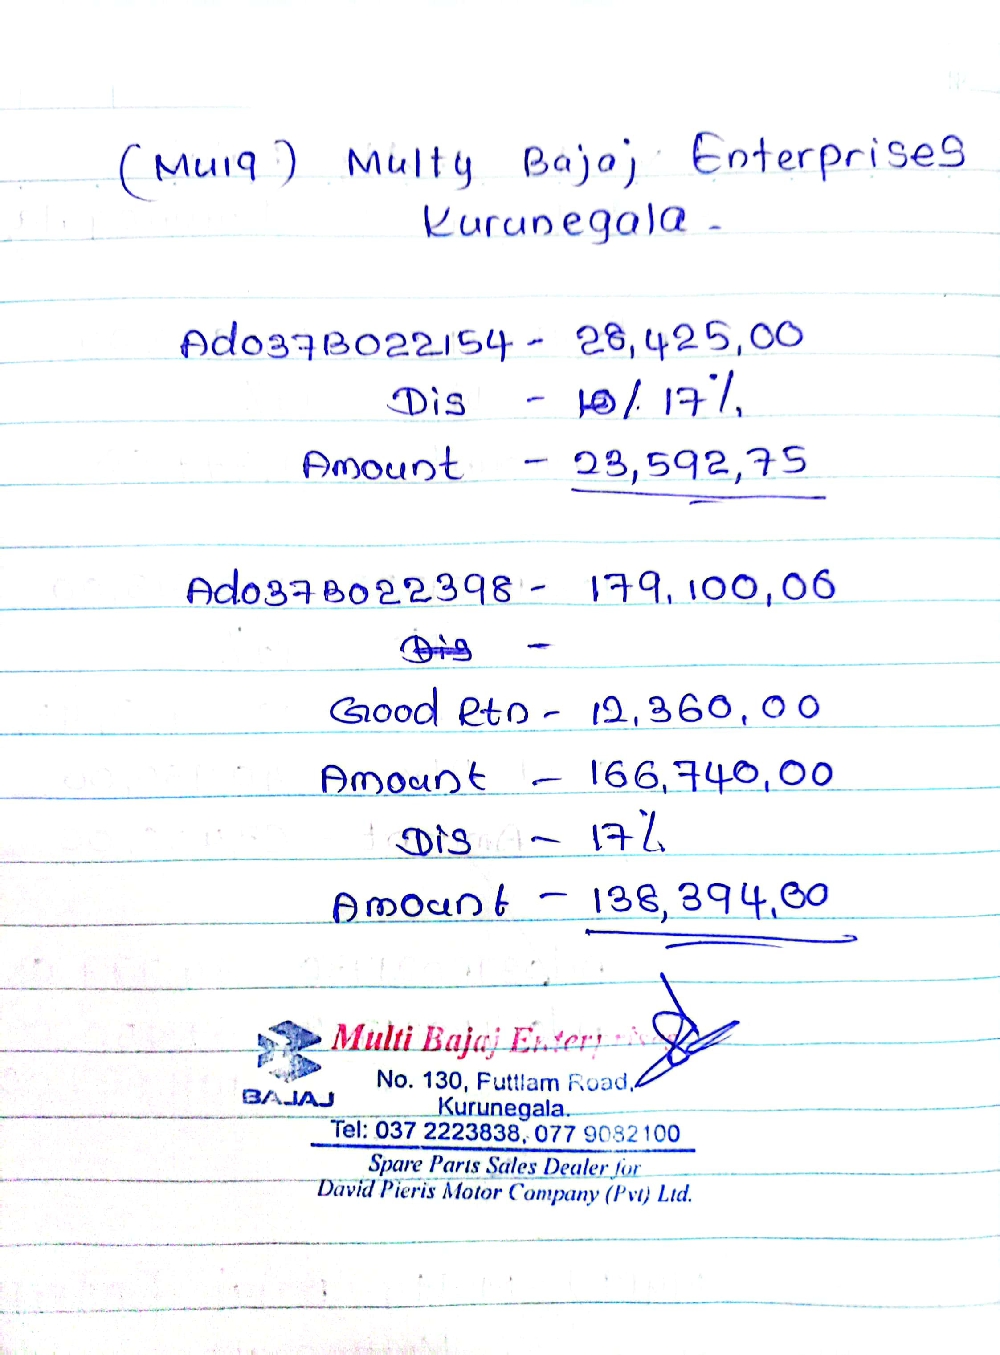 (Mu19) Multy Bajaj Enterprises
Kurunegala -
Ado37B022154 - 28,425,00
Dis - 10/. 17%
Amount - 23,592,75
Ado37B022398 - 179,100,06
Dis -
Good Rtn - 12,360,00
Amount - 166,740,00
Dis - 17%
Amount - 138,394,80
Multi Bajaj Enterprises
BAJAJ
No. 130, Futtlam Road,
Kurunegala.
Tel: 037 2223838, 077 9082100
Spare Parts Sales Dealer for
David Pieris Motor Company (Pvt) Ltd.